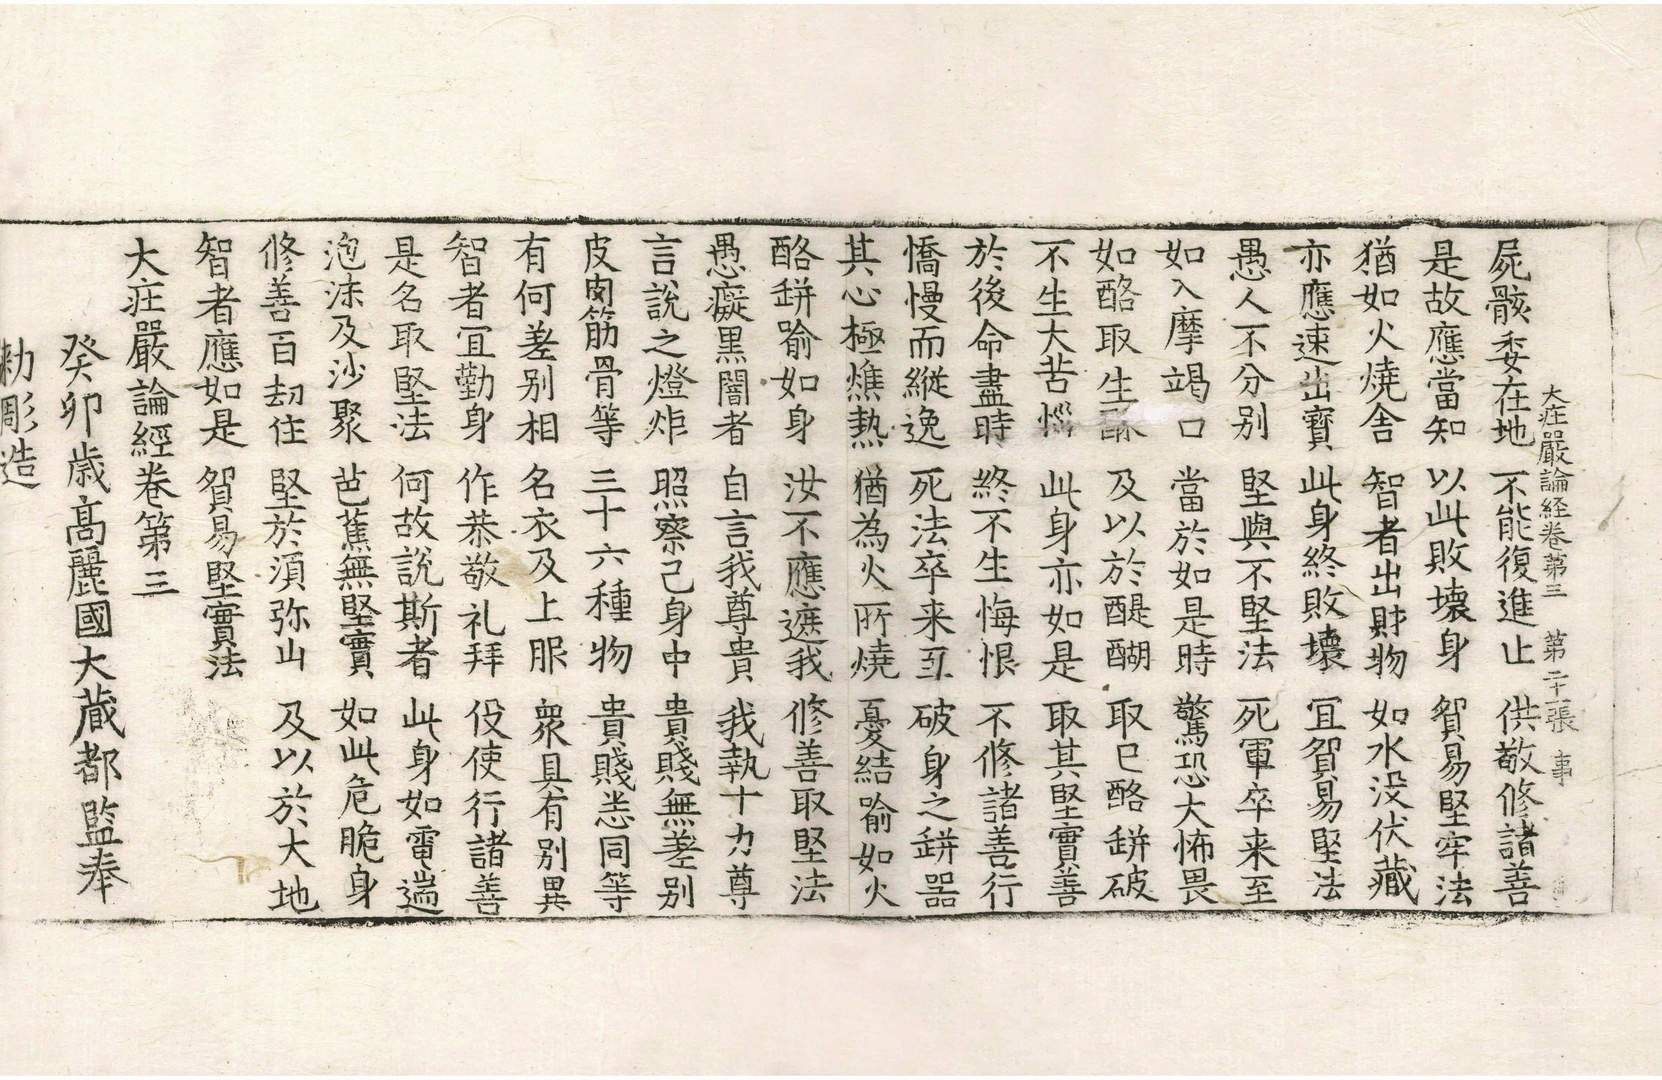 大莊嚴論経卷第三 第二十一張 事
屍骸委在地 不能復進止 供敬修諸善
是故應當知 以此敗壞身 貿易堅牢法
猶如火燒舍 智者出財物 如水没伏藏
亦應速出寶 此身終敗壞 宜貿易堅法
愚人不分別 堅與不堅法 死軍卒来至
如入摩竭口 當於如是時 驚恐大怖畏
如酪取生酥 及以於醍醐 取已酪缾破
不生大苦惱 此身亦如是 取其堅實善
於後命盡時 終不生悔恨 不修諸善行
憍慢而縦逸 死法卒来至 破身之缾器
其心極燋熱 猶為火所燒 憂結喻如火
酪缾喻如身 汝不應遮我 修善取堅法
愚癡黒闇者 自言我尊貴 我執十力尊
言說之燈炬 照察己身中 貴賤無差別
皮肉筋骨等 三十六種物 貴賤悉同等
有何差別相 名衣及上服 衆具有別異
智者宜勤身 作恭敬礼拜 伇使行諸善
是名取堅法 何故說斯者 此身如雷遄
泡沫及沙聚 芭蕉無堅實 如此危脆身
修善百劫住 堅於湏弥山 及以於大地
智者應如是 貿易堅實法
大莊嚴論經卷第三
癸卯歲髙麗國大藏都監奉
勑彫造